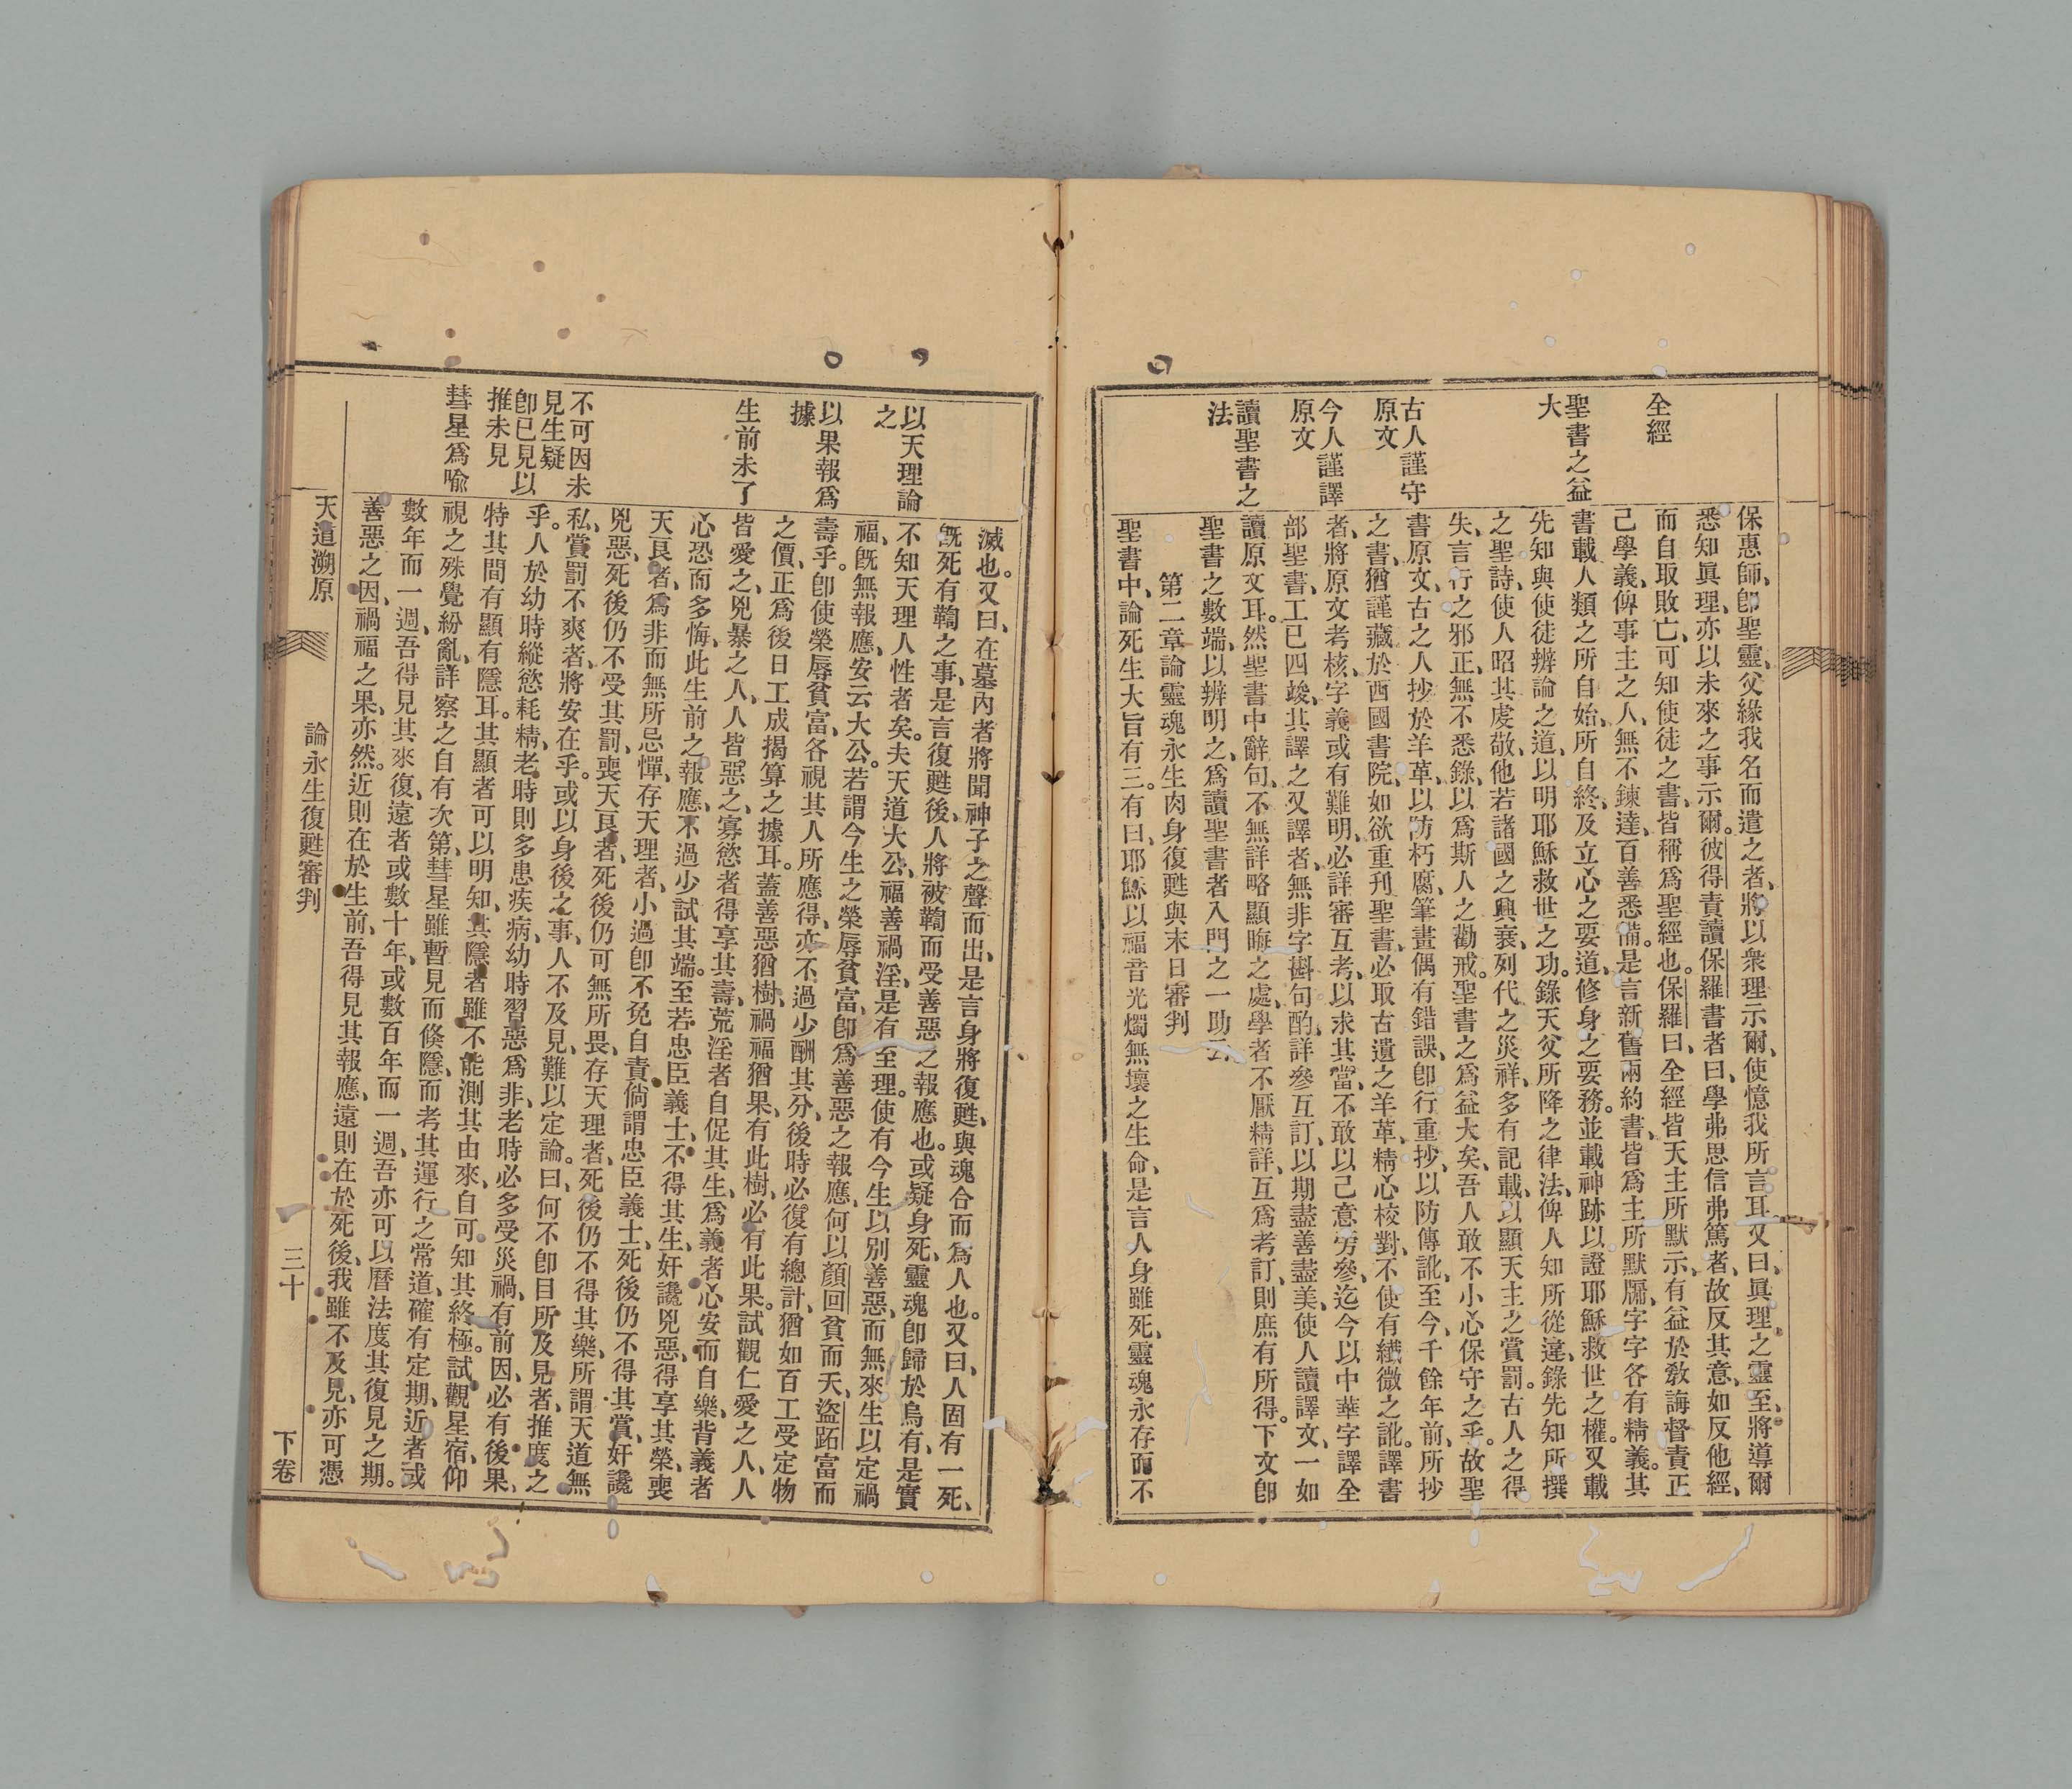 全經
聖書之益
大
古人謹守
原文
今人謹譯
原文
讀聖書之
法
保惠師、卽聖靈、父緣我名而遣之者、將以衆理示爾、使憶我所言耳、又曰、眞理之靈至、將導爾
悉知眞理、亦以未來之事示爾。彼得責讀保羅書者曰、學弗思信弗篤者、故反其意、如反他經、
而自取敗亡、可知使徒之書、皆稱爲聖經也。保羅曰、全經皆天主所默示、有益於敎誨督責正
己學義、俾事主之人、無不鍊達、百善悉備。是言新舊兩約書、皆爲主所默牖、字字各有精義。其
書載人類之所自始、所自終、及立心之要道、修身之要務。並載神跡以證耶穌救世之權。又載
先知與使徒辨論之道、以明耶穌救世之功。錄天父所降之律法、俾人知所從違、錄先知所撰
之聖詩、使人昭其虔敬、他若諸國之興衰、列代之災祥、多有記載、以顯天主之賞罰。古人之得
失、言行之邪正、無不悉錄、以爲斯人之勸戒。聖書之爲益大矣、吾人敢不小心保守之乎。故聖
書原文、古之人抄於羊革、以防朽腐、筆畫偶有錯誤、卽行重抄、以防傳訛、至今千餘年前、所抄
之書、猶謹藏於西國書院、如欲重刊聖書、必取古遺之羊革、精心校對、不使有纖微之訛。譯書
者、將原文考核、字義或有難明、必詳審互考、以求其當、不敢以己意旁參、迄今以中華字譯全
部聖書、工已四竣、其譯之又譯者、無非字斟句酌、詳參互訂、以期盡善盡美、使人讀譯文、一如
讀原文耳。然聖書中辭句、不無詳略顯晦之處、學者不厭精詳、互爲考訂、則庶有所得。下文卽
聖書之數端、以辨明之、爲讀聖書者入門之一助云、
第二章論靈魂永生肉身復甦與末日審判
聖書中、論死生大旨有三。有曰、耶穌以福音光燭無壞之生命、是言人身雖死、靈魂永存而不
以天理論
之
以果報爲
據
生前未了
不可因未
見生疑
卽已見以
推未見
彗星爲喩
滅也。又曰、在墓內者將聞神子之聲而出、是言身將復甦、與魂合而爲人也。又曰、人固有一死、
旣死有鞫之事、是言復甦後、人將被鞫而受善惡之報應也。或疑身死、靈魂卽歸於烏有、是實
不知天理人性者矣。夫天道大公、福善禍淫、是有至理。使有今生以別善惡、而無來生以定禍
福、旣無報應、安云大公。若謂今生之榮辱貧富、卽爲善惡之報應、何以顏回貧而夭、盜跖富而
壽乎。卽使榮辱貧富、各視其人所應得、亦不過少酬其分、後時必復有總計、猶如百工受定物
之價、正爲後日工成揭算之據耳。蓋善惡猶樹、禍福猶果、有此樹、必有此果。試觀仁愛之人、人
皆愛之、兇暴之人、人皆惡之、寡慾者得享其壽、荒淫者自促其生、爲義者心安而自樂、背義者
心恐而多悔、此生前之報應、不過少試其端。至若忠臣義士、不得其生、奸讒兇惡、得享其榮、喪
天良者、爲非而無所忌憚、存天理者、小過卽不免自責、倘謂忠臣義士、死後仍不得其賞、奸讒
兇惡、死後仍不受其罰、喪天良者、死後仍可無所畏、存天理者、死後仍不得其樂、所謂天道無
私、賞罰不爽者、將安在乎。或以身後之事、人不及見、難以定論。曰、何不卽目所及見者、推度之
乎。人於幼時縱慾耗精、老時則多患疾病、幼時習惡爲非、老時必多受災禍、有前因、必有後果、
特其間有顯有隱耳。其顯者可以明知、其隱者雖不能測其由來、自可知其終極。試觀星宿、仰
視之殊覺紛亂、詳察之自有次第、彗星雖暫見而倏隱、而考其運行之常道、確有定期、近者或
數年而一週、吾得見其來復、遠者或數十年、或數百年而一週、吾亦可以曆法度其復見之期。
善惡之因、禍福之果、亦然。近則在於生前、吾得見其報應、遠則在於死後、我雖不及見、亦可憑
天道溯原
論永生復甦審判
三十
下卷